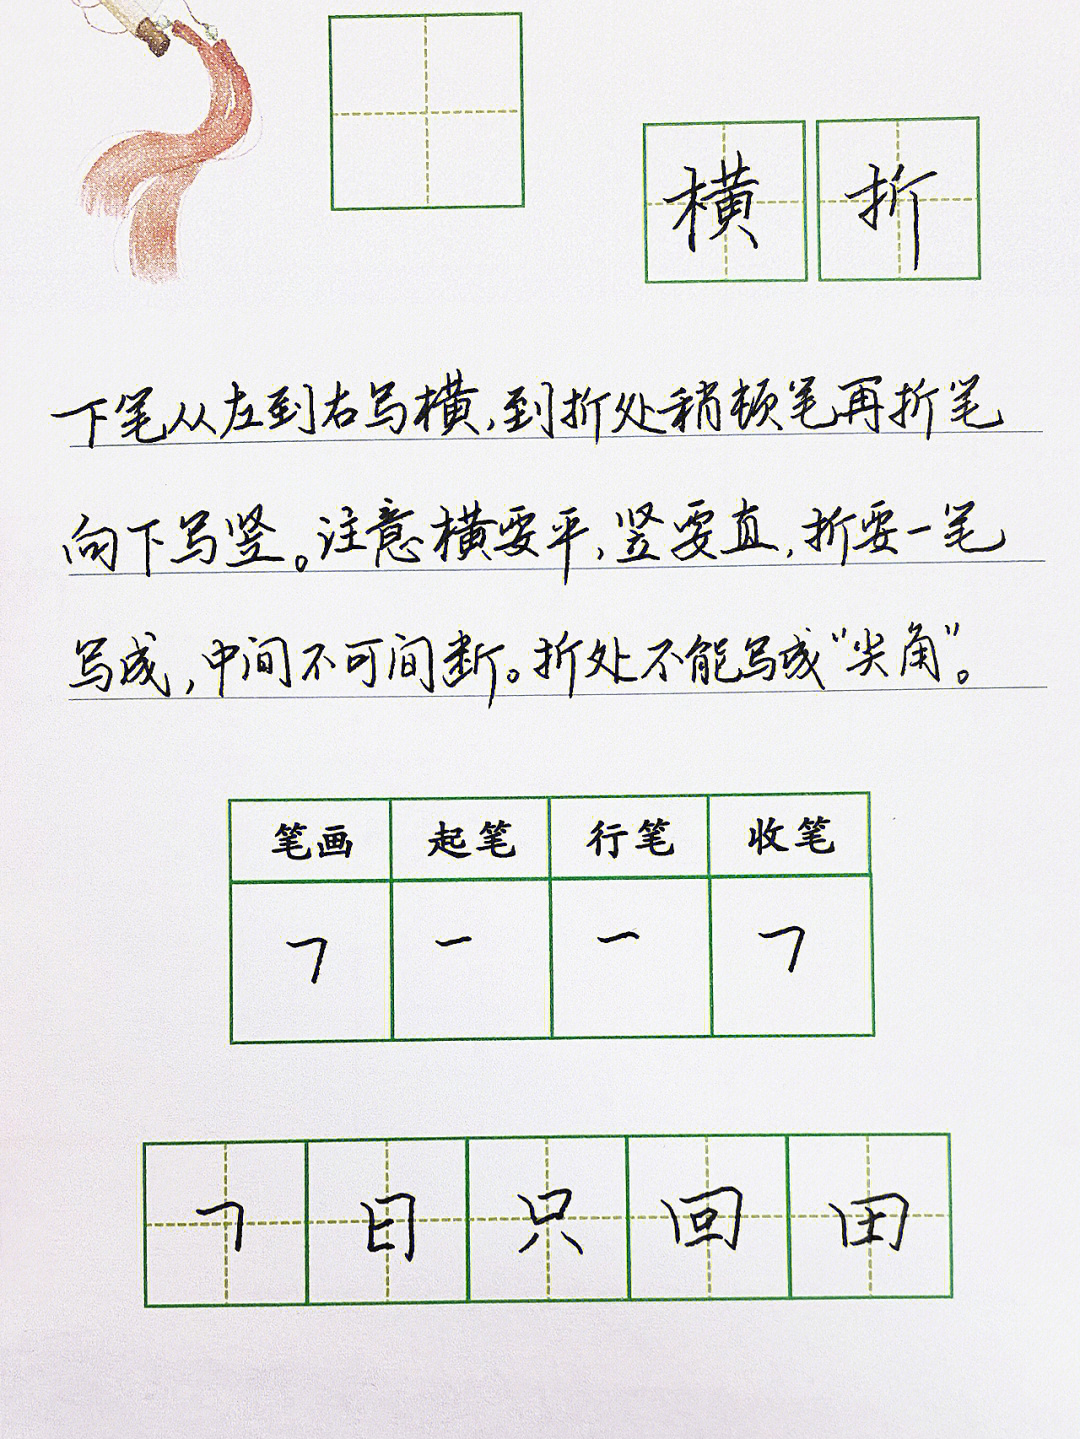 横折
下笔从左到右写横,到折处稍顿笔再折笔
向下写竖。注意横要平,竖要直,折要一笔
写成,中间不可间断。折处不能写成“尖角”。
笔画 起笔 行笔 收笔
㇕ 一 一 ㇕
㇕ 日 只 回 田